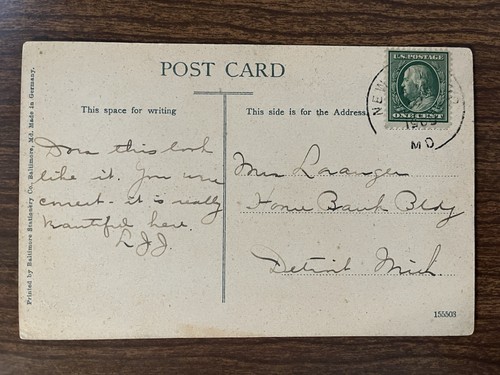 POST CARD
This space for writing
This side is for the Address
Does this look
like it. You were
correct - it is really
beautiful here.
L.J.J.
Loranger
Home Bank Bldg
Detroit Mich.
U.S. POSTAGE
ONE CENT
NEW
MD
155503
Printed by Baltimore Stationery Co., Baltimore, Md. Made in Germany.